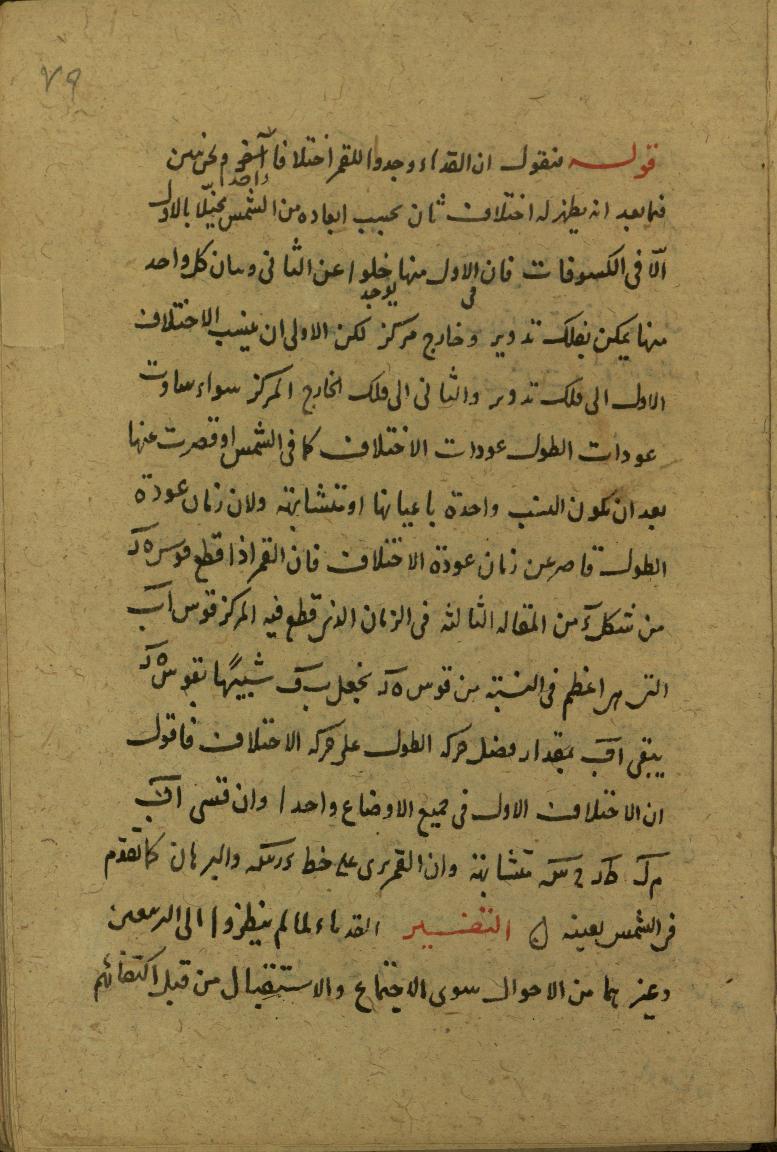 ٧٩
قوله فنقول ان القدماء وجدوا للقمر اختلافا واحدا ونحن نبين
فيما بعد انه يظهر له اختلاف ثان بحسب ابعاده من الشمس بالاول
الّا فى الكسوفات فان الاول منها خلوا عن الثانى وسان كل واحد
يوجد فى
منها يمكن بفلك تدوير وخارج مركز لكن الاولى ان ينسب الاختلاف
الاول الى فلك تدوير والثانى الى فلك الخارج المركز سواء ساوت
عودات الطول عودات الاختلاف كما فى الشمس او قصرت عنها
بعد ان تكون النسب واحدة باعيانها او متشابهة ولان زمان عودة
الطول قاصر عن زمان عودة الاختلاف فان القمر اذا قطع قوس ه د
من شكل آ من المقاله الثالثه فى الزمان الذى قطع فيه المركز قوس اب
التى هى اعظم فى النسبة من قوس ه د نجعل ب ف شبيهًا بقوس ه د
يبقى اف بمقدار فضل حركه الطول على حركه الاختلاف فاقول
ان الاختلاف الاول فى جميع الاوضاع واحدا وان قسى اف
متشابهة وان القمر يرى على خط والبرهان كما تقدم
فى الشمس بعينه التفسير القدماء لما لم ينظروا الى التربيعين
وغيرهما من الاحوال سوى الاجتماع والاستقبال من قبل اكتفائهم